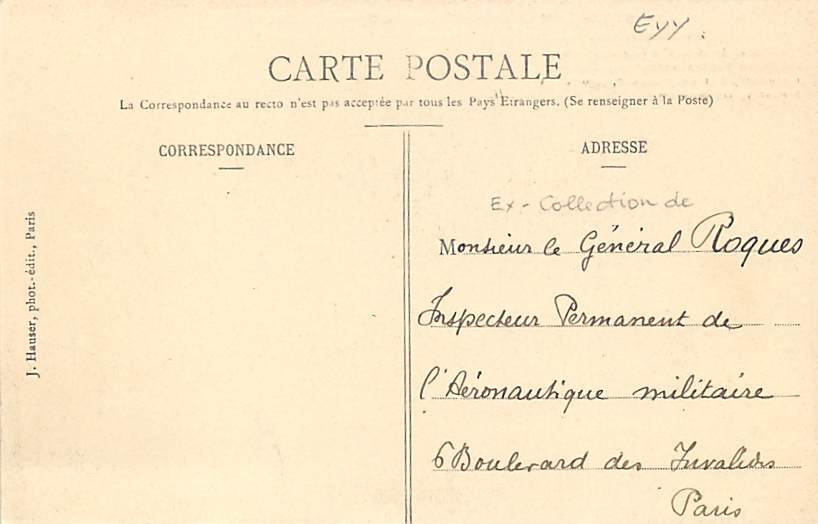 Eyy.
CARTE POSTALE
La Correspondance au recto n'est pas acceptée par tous les Pays Etrangers. (Se renseigner à la Poste)
CORRESPONDANCE
ADRESSE
Ex-Collection de
Monsieur le Général Roques
Inspecteur Permanent de
l'Aéronautique militaire
6 Boulevard des Invalides
Paris
J. Hauser, phot.-édit., Paris